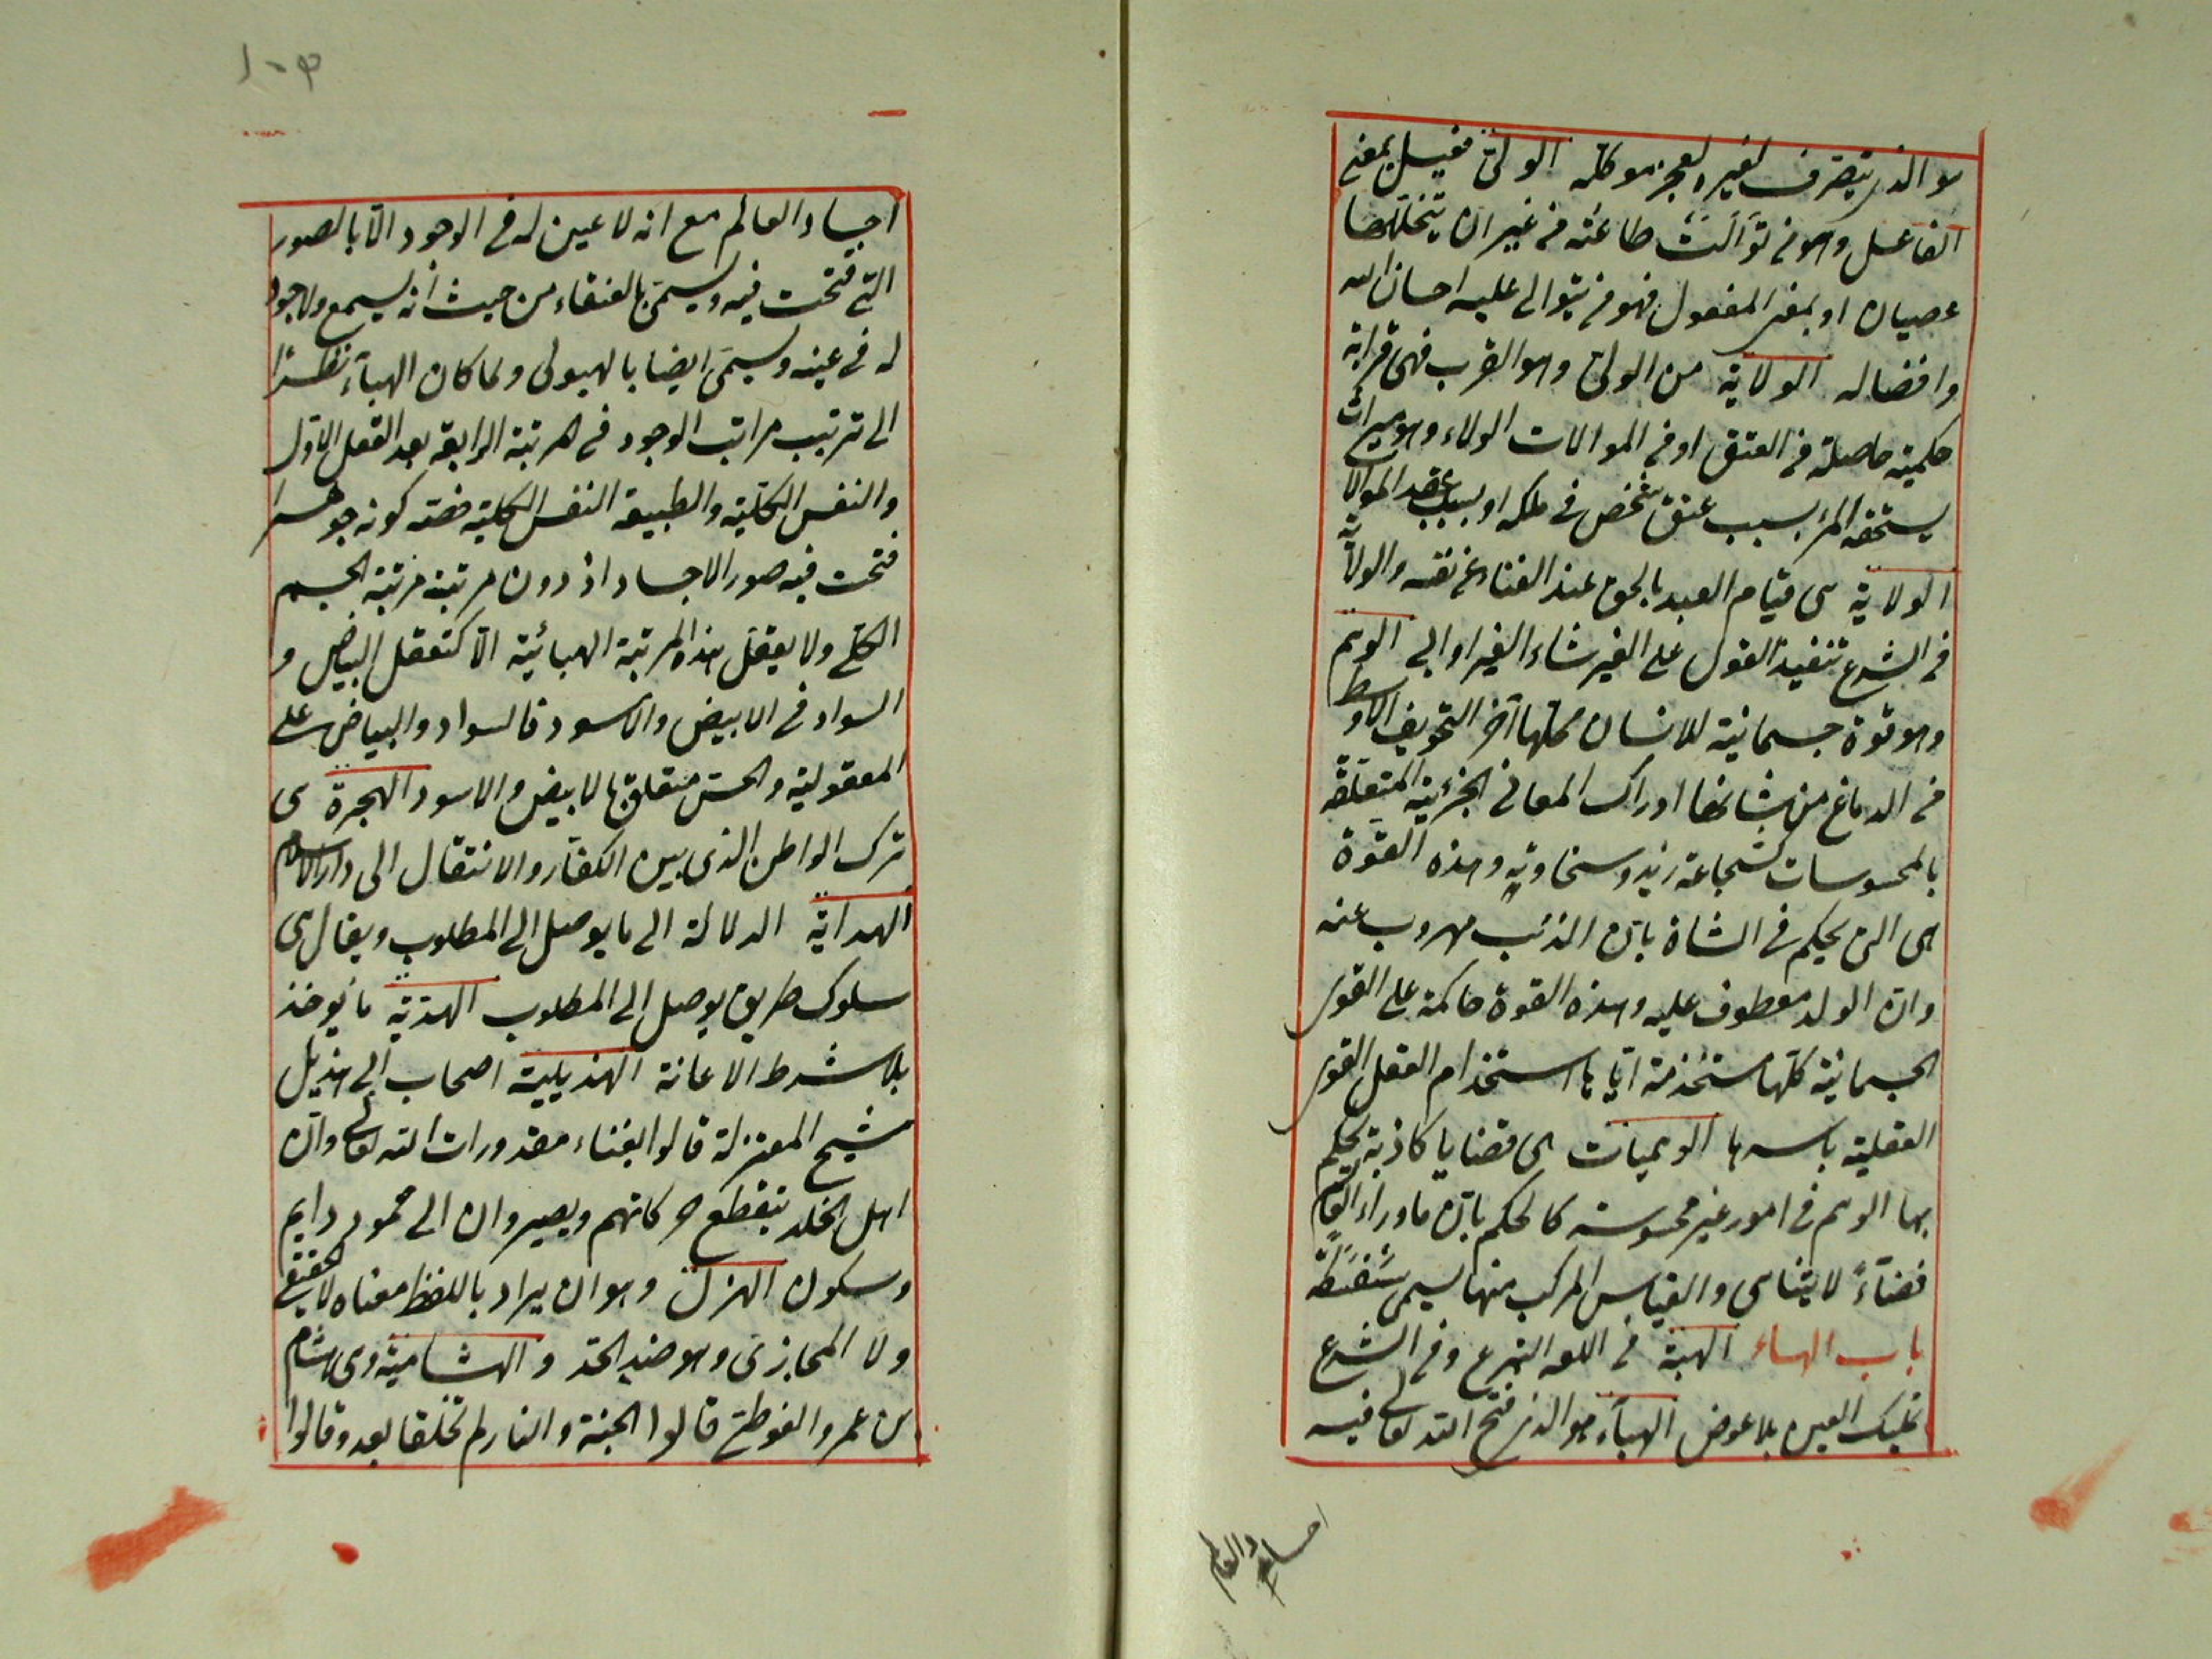 هو الذى يتصرف لغيره لعجز موكله الولى فعيل بمعنى
الفاعل وهو من توالت طاعته من غير ان يتخللها
عصيان او بمعنى المفعول فهو من يتوالى عليه احسان الله
وافضاله الولاية من الولى وهو القرب فهى قرابة
حكمية حاصلة من العتق او من الموالات الولاء وهو ميراث
يستحقه المرء بسبب عتق شخص فى ملكه او بسبب عقد الموالاة
الولاية هى قيام العبد بالحق عند الفناء عن نفسه والولاية
فى الشرع تنفيذ القول على الغير شاء الغير او ابى الوهم
وهو قوة جسمانية للانسان محلها آخر التجويف الاوسط
فى الدماغ من شانها ادراك المعانى الجزئية المتعلقة
بالمحسوسات كشجاعة زيد وسخاوته وهذه القوة
هى التى يحكم فى الشاة بان الذئب مهروب عنه
وان الولد معطوف عليه وهذه القوة حاكمة على القوى
الجسمانية كلها مستخدمة اياها استخدام العقل القوى
العقلية باسرها الوهميات هى قضايا كاذبة يحكم
بها الوهم فى امور غير محسوسة كالحكم بان ماوراء العالم
فضاءً لا يتناهى والقياس المركب منها يسمى سفسطة
باب الهاء الهبة فى اللغة التبرع وفى الشرع
تمليك العين بلا عوض الهباء هو الذى فتح الله تعالى فيه
اجساد العالم
اجساد العالم مع انه لا عين له فى الوجود الا بالصور
التى فتحت فيه ويسمى بالعنقاء من حيث انه يسمع ولا وجود
له فى عينه ويسمى ايضا بالهيولى ولما كان الهباء نظرا
الى ترتيب مراتب الوجود فى المرتبة الرابعة بعد العقل الاول
والنفس الكلية والطبيعة النفس الكلية خصه كونه جوهرا
فتحت فيه صور الاجساد اذ دون مرتبته مرتبة الجسم
الكلى ولا يعقل هذه المرتبة الهبائية الا كتعقل البياض و
السواد فى الابيض والاسود فالسواد والبياض على
المعقولية والحس متعلق بالابيض والاسود الهجرة هى
ترك الواطن الذى بين الكفار والانتقال الى دار الاسلام
الهداية الدلالة الى ما يوصل الى المطلوب ويقال هى
سلوك طريق يوصل الى المطلوب الهدية ما يوخذ
بلا شرط الاعانة الهذيلية اصحاب ابى الهذيل
شيخ المعتزلة قالوا بفناء مقدورات الله تعالى وان
اهل الخلد ينقطع حركاتهم ويصيرون الى خمود دايم
وسكون الهزل وهو ان يراد باللفظ معناه لا الحقيقى
ولا المجازى وهو ضد الجد والهشامية وهى هشام
بن عمرو الفوطى قالوا الجنة والنار لم تخلقا بعد وقالوا